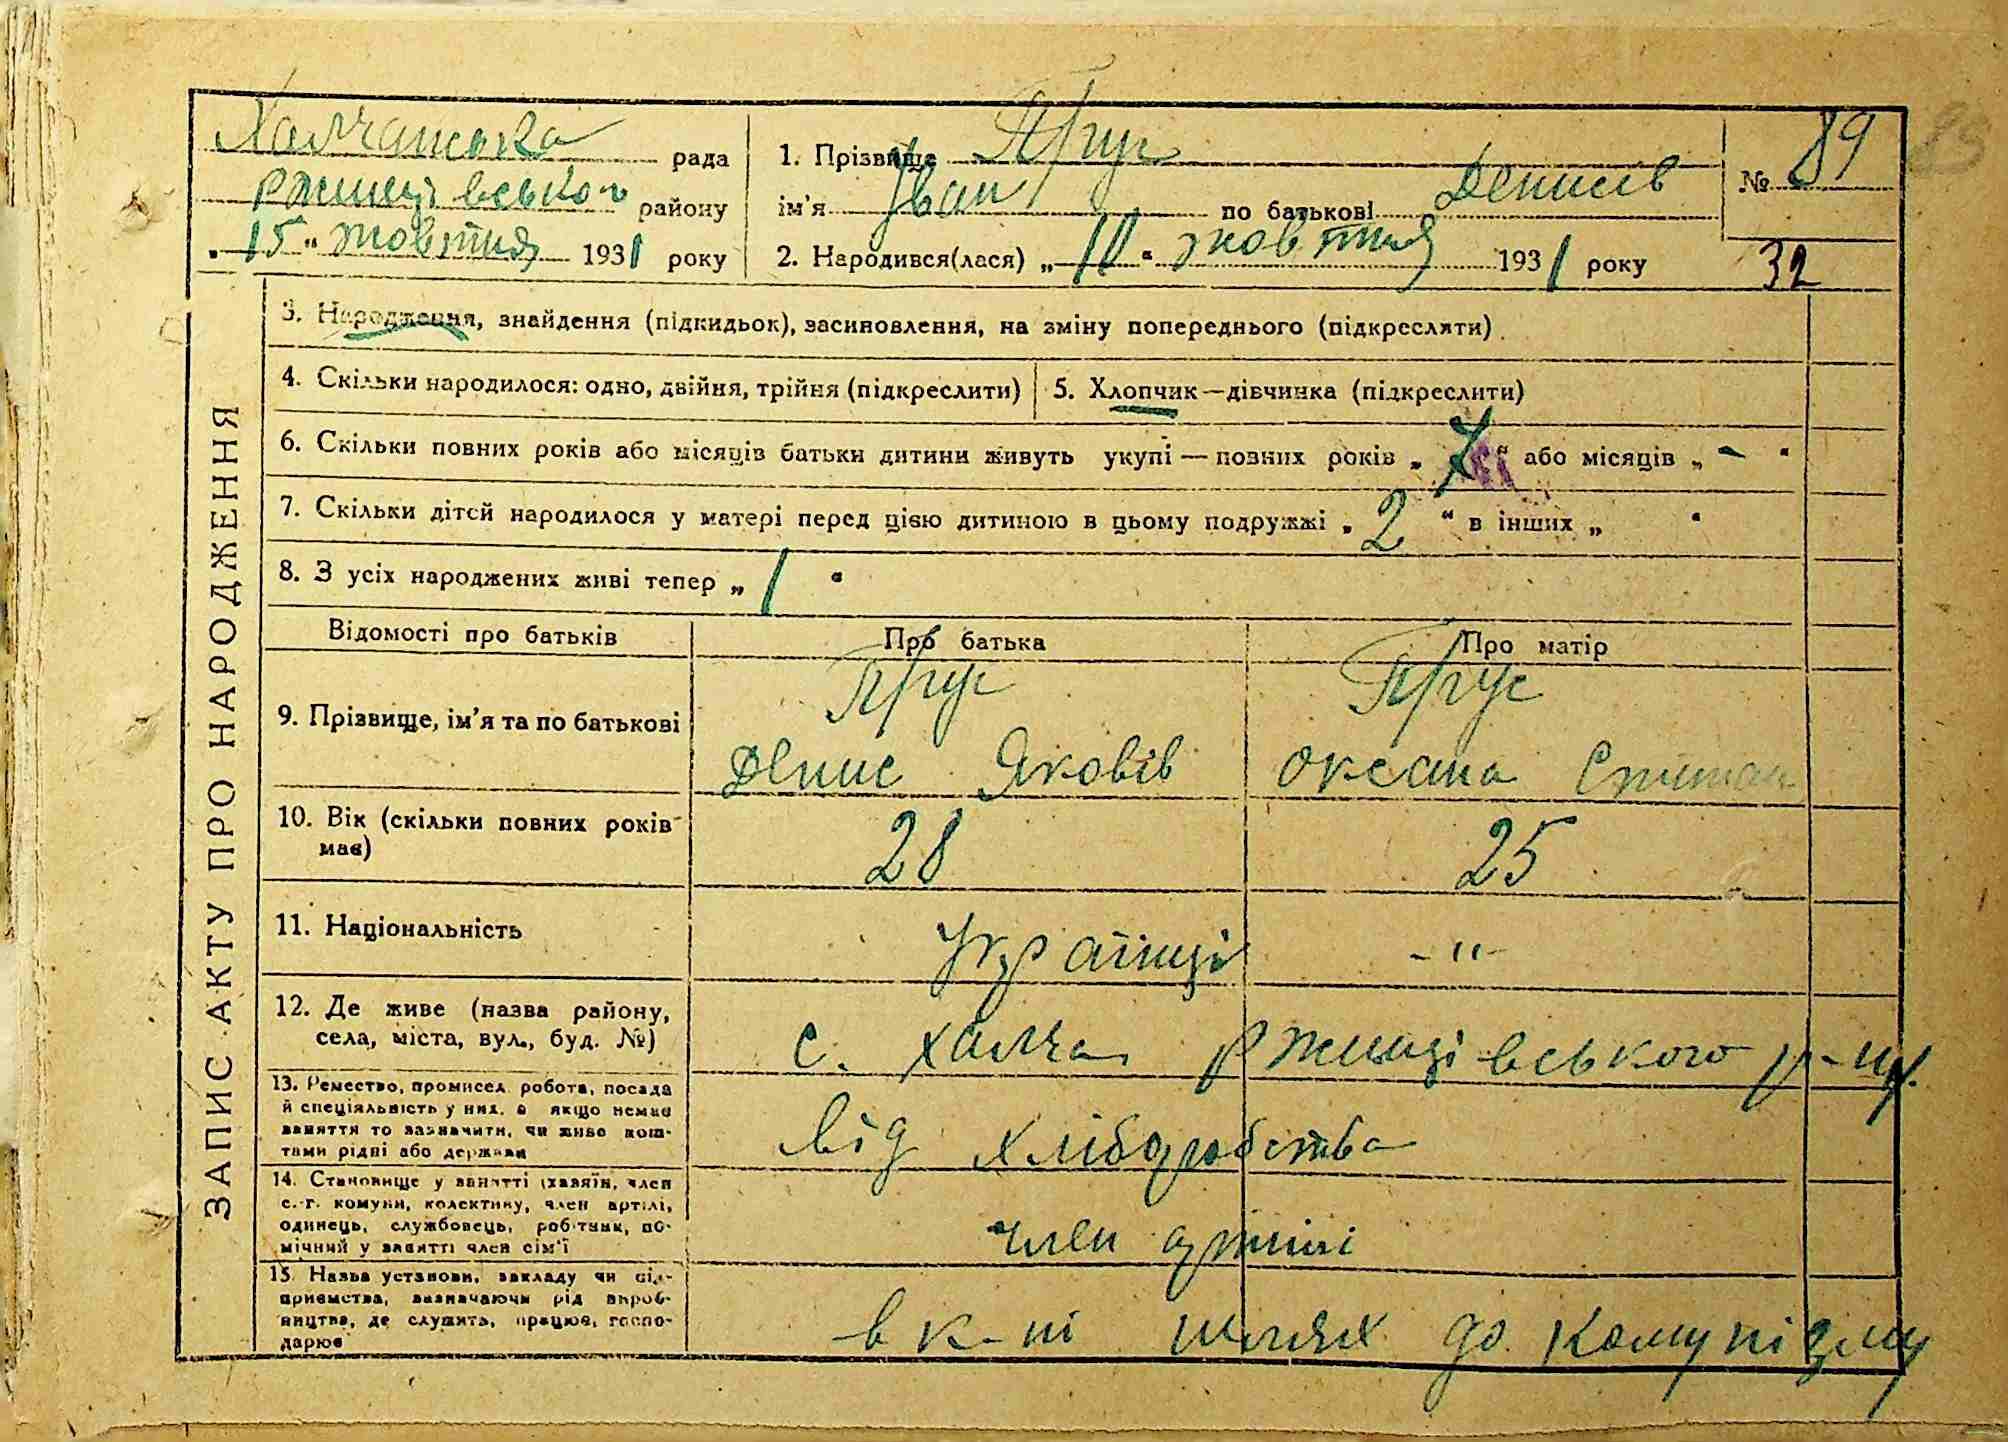 Халчанська рада
Ржищівського району
„15“ жовтня 1931 року
1. Прізвище Прус
ім'я Іван по батькові Денисів
2. Народився(лася) „10“ жовтня 1931 року
№ 89
32
ЗАПИС АКТУ ПРО НАРОДЖЕННЯ
3. Народження, знайдення (підкидьок), засиновлення, на зміну попереднього (підкреслити).
4. Скільки народилося: одно, двійня, трійня (підкреслити)
5. Хлопчик—дівчинка (підкреслити)
6. Скільки повних років або місяців батьки дитини живуть укупі — повних років „ “ або місяців „ - “
7. Скільки дітей народилося у матері перед цією дитиною в цьому подружжі „ 2 “ в інших „ “
8. З усіх народжених живі тепер „ 1 “
Відомості про батьків Про батька Про матір
9. Прізвище, ім'я та по батькові
Прус Прус
Денис Яковів Оксана
10. Вік (скільки повних років
має) 28 25
11. Національність Українці -"-
12. Де живе (назва району,
села, міста, вул., буд. №)
с. Халча Ржищівського р-ну.
13. Ремество, промисел робота, посада
й спеціяльність у них, а якщо немає
заняття то зазначити, чи живе кош-
тами рідні або держави
від хліборобства
14. Становище у занятті (хазяїн, член
с.-г. комуни, колективу, член артілі,
одинець, службовець, робітник, по-
мічний у занятті член сім'ї
член артілі
15. Назва установи, закладу чи під-
приємства, зазначаючи рід вироб-
ництва, де служить, працює, госпо-
дарює
в к-пі шлях до комунізму